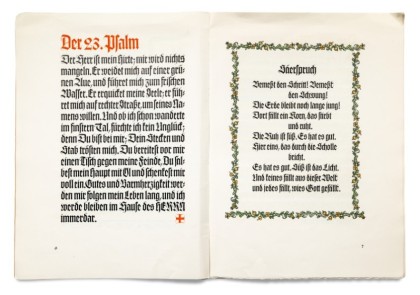 Der 23. Psalm
Der Herr ist mein Hirte; mir wird nichts
mangeln. Er weidet mich auf einer grü-
nen Aue, und führet mich zum frischen
Wasser. Er erquicket meine Seele; er füh-
ret mich auf rechter Straße, um seines Na-
mens willen. Und ob ich schon wanderte
im finstern Tal, fürchte ich kein Unglück;
denn Du bist bei mir; Dein Stecken und
Stab trösten mich. Du bereitest vor mir
einen Tisch gegen meine Feinde. Du sal-
best mein Haupt mit Öl und schenkest mir
voll ein. Gutes und Barmherzigkeit wer-
den mir folgen mein Leben lang, und ich
werde bleiben im Hause des HERRN
immerdar.
6
Säerspruch
Bemeßt den Schritt! Bemeßt
den Schwung!
Die Erde bleibt noch lange jung!
Dort fällt ein Korn, das stirbt
und ruht.
Die Ruh ist süß. Es hat es gut.
Hier eins, das durch die Scholle
bricht.
Es hat es gut. Süß ist das Licht.
Und keines fällt aus dieser Welt
und jedes fällt, wies Gott gefällt.
7